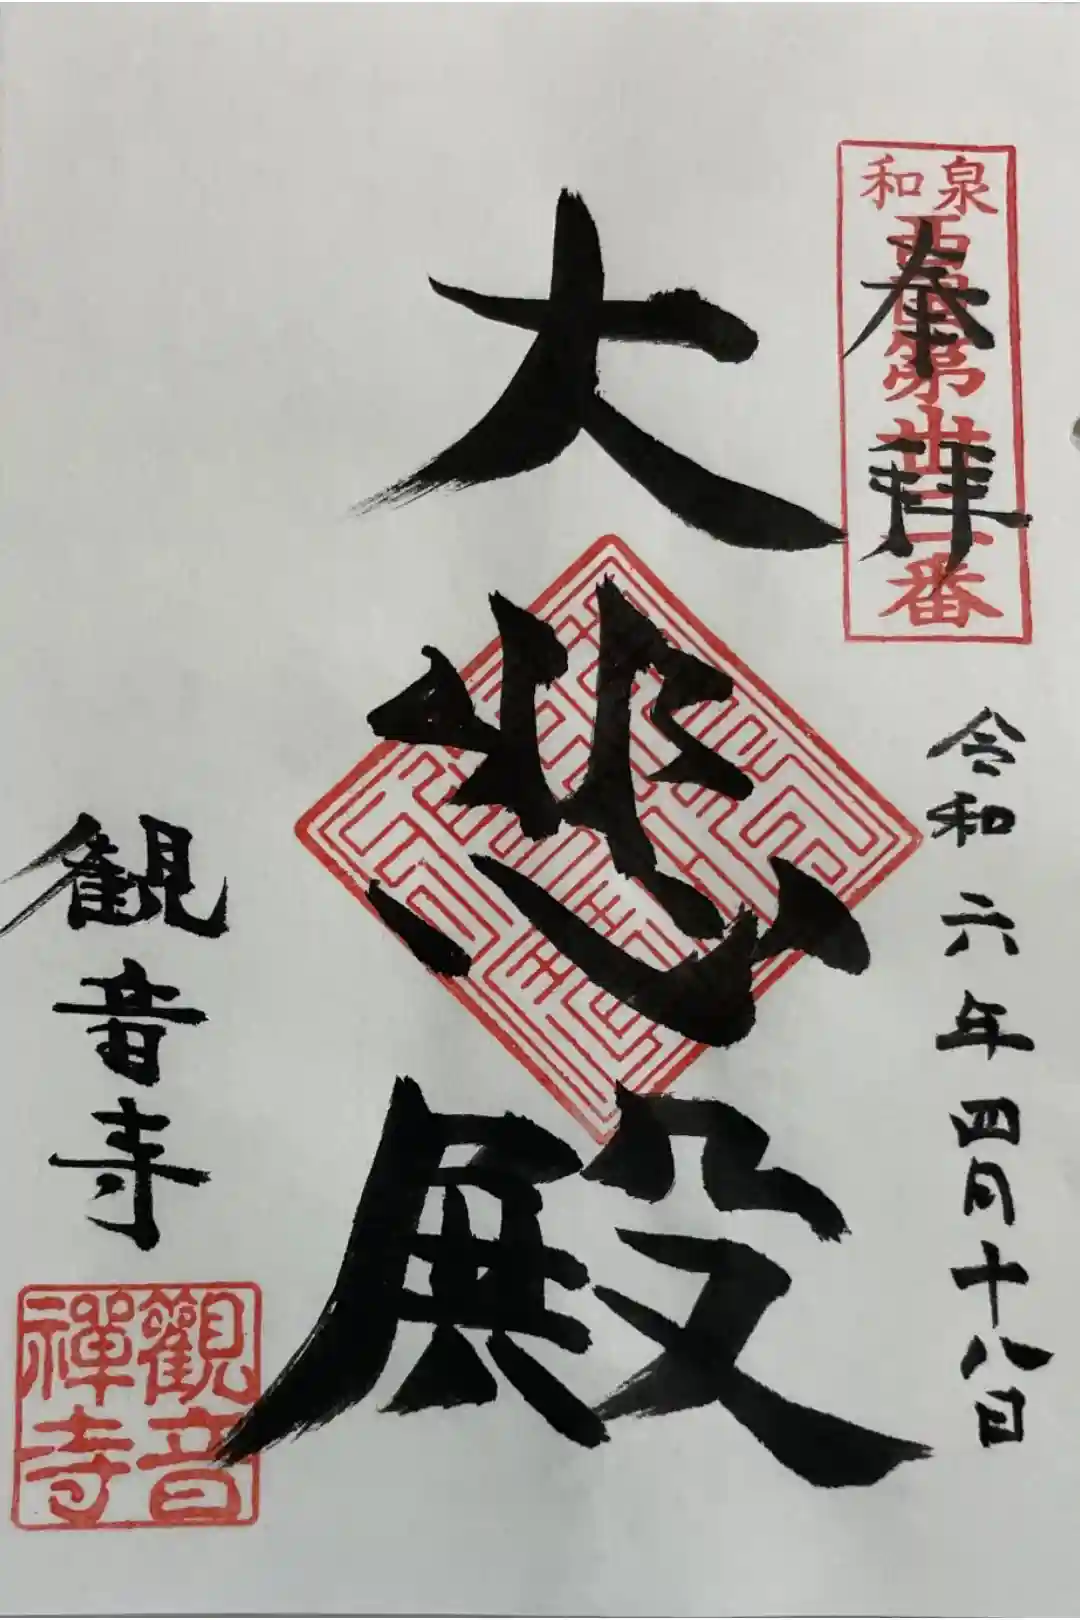 奉拝
和泉
西国第卅二番
令和六年四月十八日
大悲殿
観音寺
觀音
禪寺